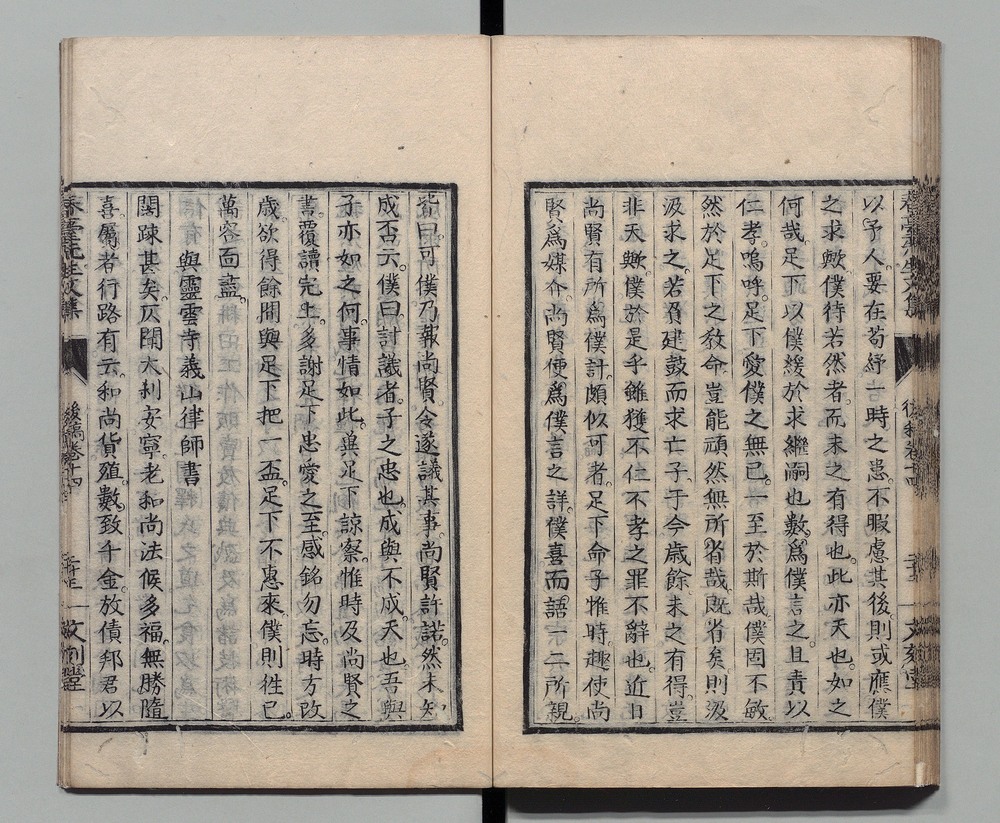 以予人要在苟紓一時之患不暇慮其後則或應僕
之求歟僕待若然者而未之有得也此亦天也如之
何哉足下以僕緩於求繼嗣也數爲僕言之且責以
仁孝嗚呼足下愛僕之無已一至於斯哉僕固不敏
然於足下之敎命豈能頑然無所省哉既省矣則汲
汲求之若負建鼓而求亡子于今歲餘未之有得豈
非天歟僕於是乎雖獲不仁不孝之罪不辭也近日
尚賢有所爲僕計頗似可者足下命子惟時趣使尚
賢爲媒介尚賢便爲僕言之詳僕喜而語一二所親
皆曰可僕乃報尚賢令遂議其事尚賢許諾然未知
成否云僕曰討議者子之忠也成與不成天也吾與
子亦如之何事情如此與足下諒察惟時及尚賢之
書覆讀先生多謝足下忠愛之至感銘勿忘時方改
歲欲得餘閒與足下把一盃足下不惠來僕則徃已
萬容面盡
與靈雲寺義山律師書
闊踈甚矣仄聞大刹安寧老和尚法候多福無勝隨
喜屬者行路有云和尚貨殖數致千金放債邦君以
春臺先生文集
後稿卷十四
文刻堂